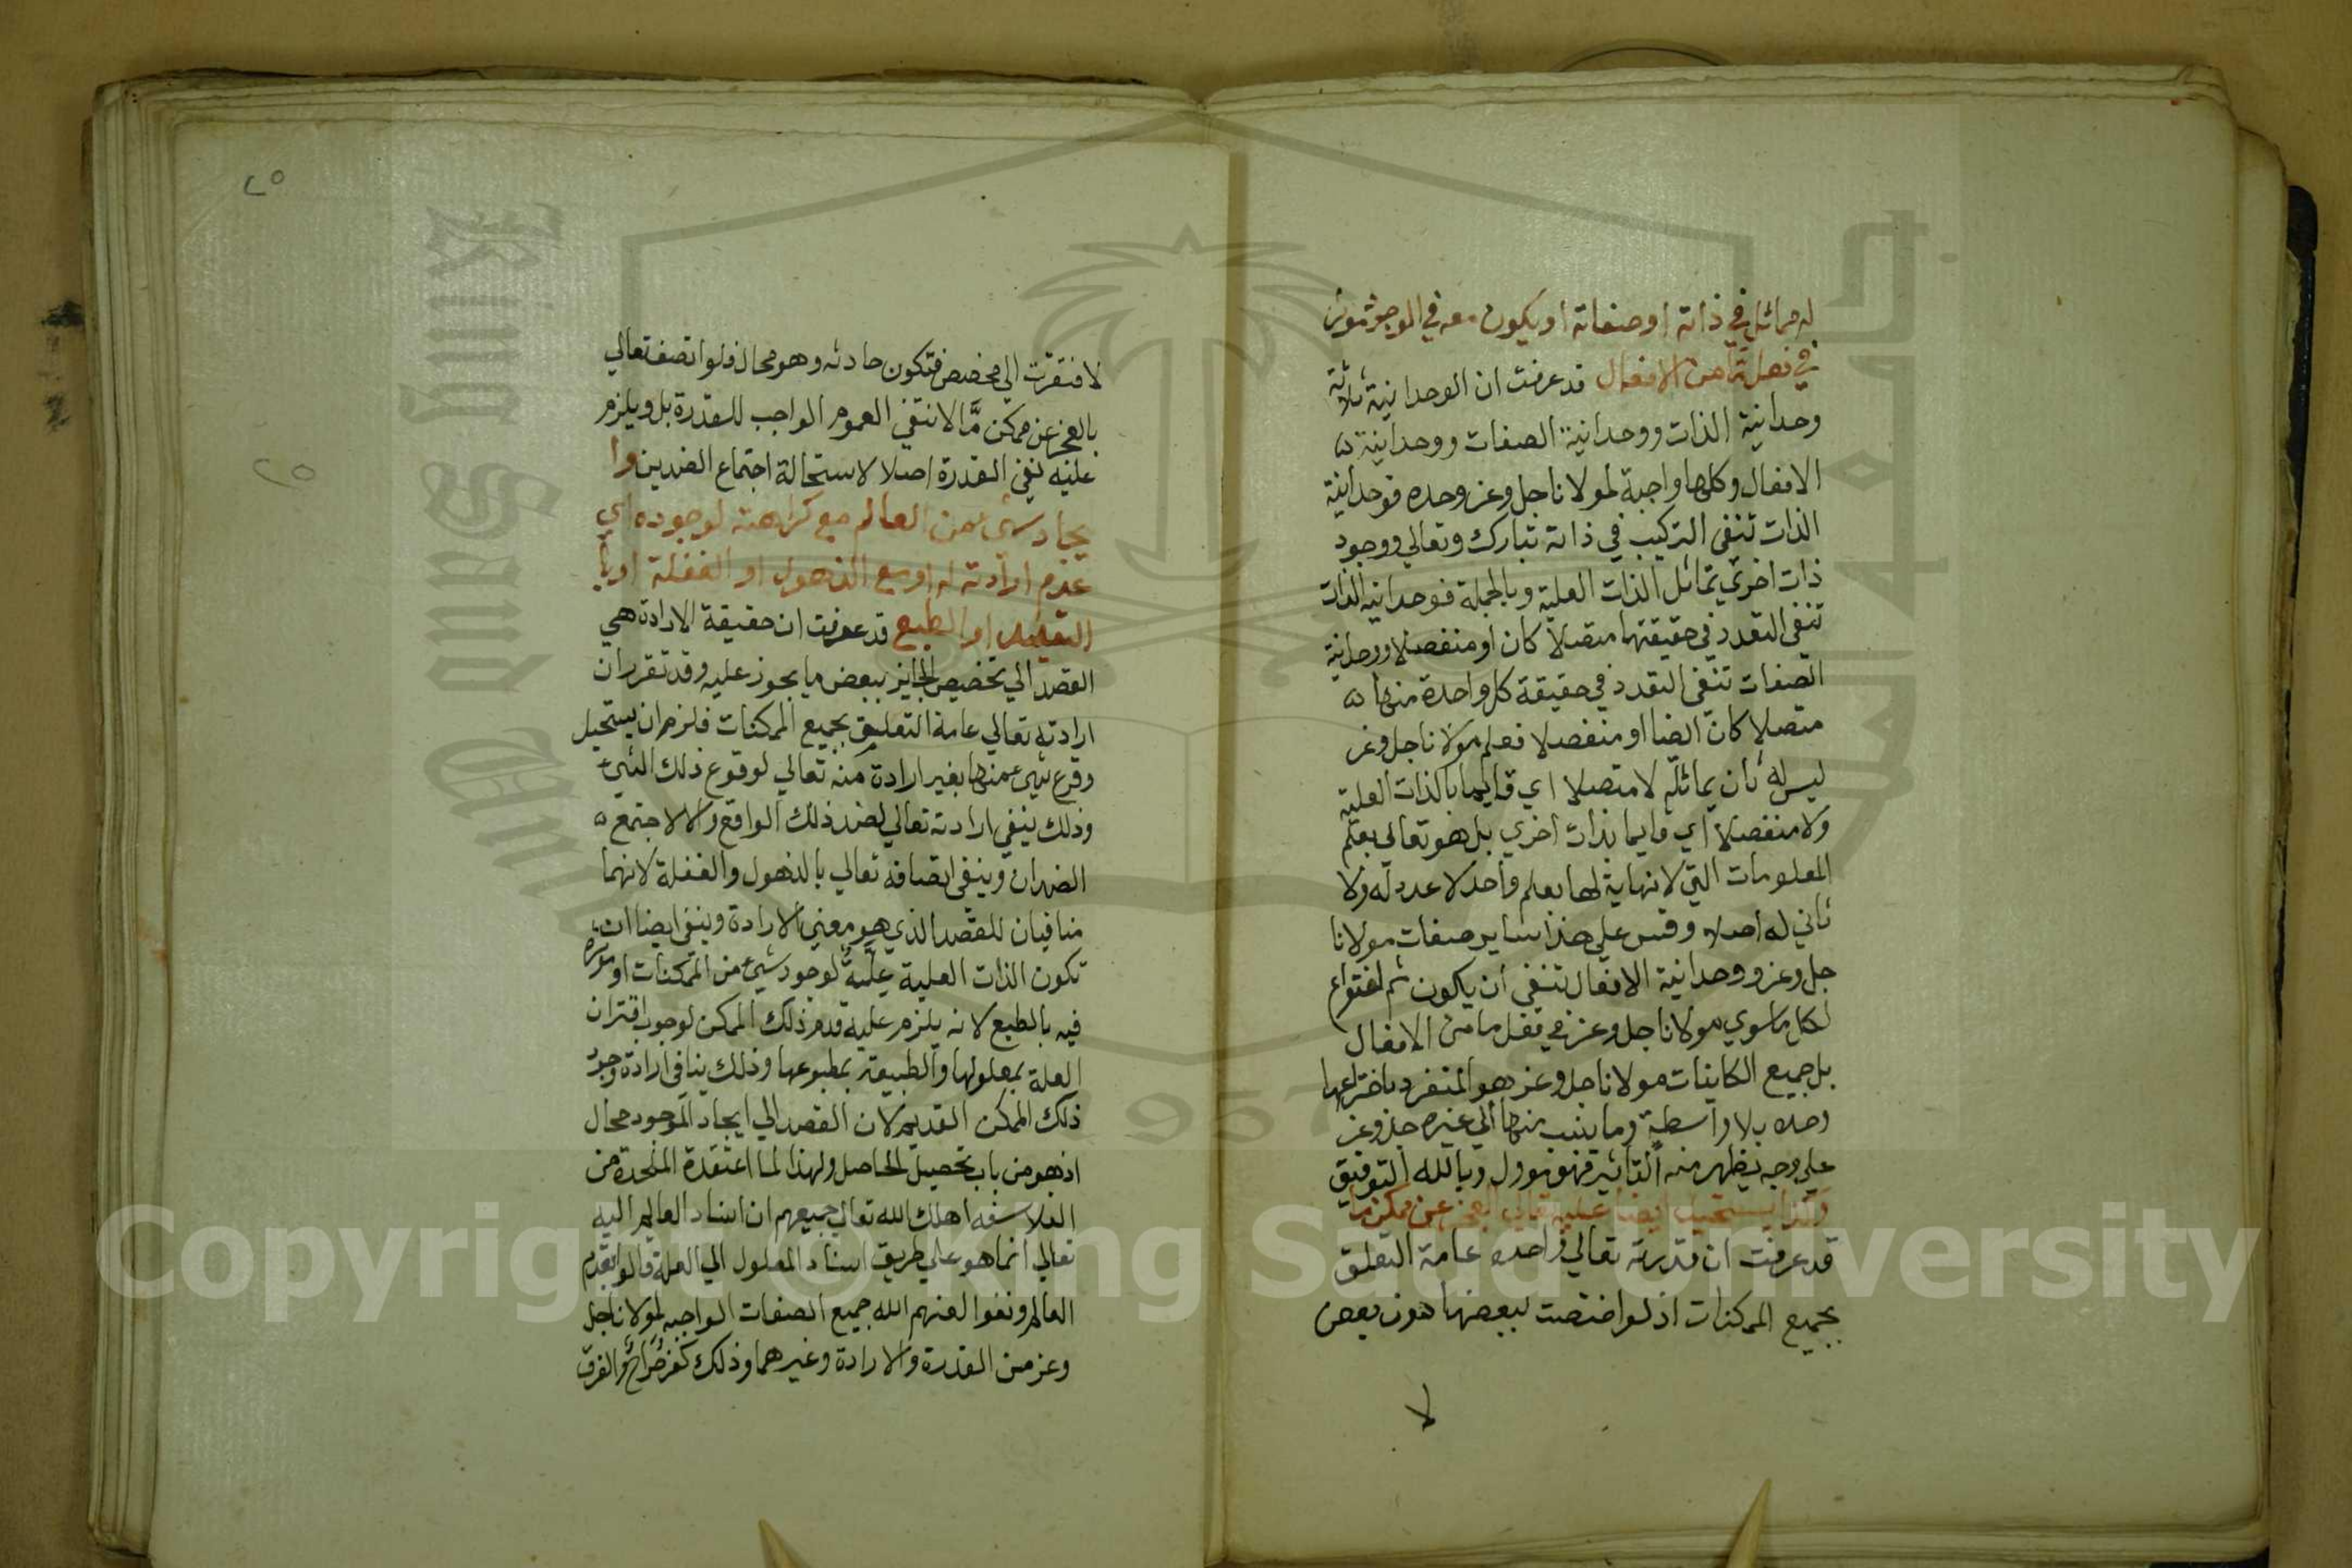 له مماثل في ذاته او صفاته او يكون معه في الوجود موثر
في فعل ما من الافعال قد عرفت ان الوحدانية ثلاثة
وحدانية الذات ووحدانية الصفات ووحدانية
الافعال وكلها واجبة لمولانا جل وعز وحده فوحدانية
الذات تنفي التركيب في ذاته تبارك وتعالي ووجود
ذات اخري تماثل الذات العلية وبالجملة فوحدانية الذات
تنفي التعدد في حقيقتها متصلا كان او منفصلا ووحدانية
الصفات تنفي التعدد في حقيقة كل واحدة منها
متصلا كان ايضا او منفصلا فعلم مولانا جل وعز
ليس له ثان يماثله لا متصلا اي قايما بالذات العلية
ولا منفصلا اي قايما بذات اخري بل هو تعالي يعلم
المعلومات التي لا نهاية لها بعلم واحد لا عدد له ولا
ثاني له اصلا وقس علي هذا ساير صفات مولانا
جل وعز ووحدانية الافعال تنفي ان يكون ثم اختراع
لكل ما سوي مولانا جل وعز في فعل ما من الافعال
بل جميع الكاينات مولانا جل وعز هو المنفرد باختراعها
وحده بلا واسطة وما ينسب منها الي غيره جل وعز
علي وجه يظهر منه التاثير فهو موول وبالله التوفيق
وكذا يستحيل ايضا عليه تعالي العجز عن ممكن ما
قد عرفت ان قدرته تعالي واحده عامة التعلق
بجميع الممكنات اذ لو اختصت ببعضها دون بعض
لا
٢٥
٢٥
لافتقرت الي مخصص فتكون حادثه وهو محال فلو اتصف تعالي
بالعجز عن ممكن مَّا لانتفي العموم الواجب للقدرة بل ويلزم
عليه نفي القدرة اصلا لاستحالة اجتماع الضدين وا
يجاد شيء من العالم مع كراهته لوجوده اي
عدم ارادته له او مع الذهول او الغفلة او با
لتعليل او الطبع قد عرفت ان حقيقة الارادة هي
القصد الي تخصيص الجايز ببعض ما يجوز عليه وقد تقرر ان
ارادته تعالي عامة التعليق بجميع الممكنات فلزم ان يستحيل
وقوع شيء منها بغير ارادة منه تعالي لوقوع ذلك الشيء
وذلك ينفي ارادته تعالي لضد ذلك الواقع والا لاجتمع
الضدان وينفي اتصافه تعالي بالذهول والغفلة لانهما
منافيان للقصد الذي هو معني الارادة وينفي ايضا ان
تكون الذات العلية علَّةً لوجود شيء من الممكنات او موثرة
فيه بالطبع لانه يلزم عليه قدم ذلك الممكن لوجوب اقتران
العلة بمعلولها والطبيعة بمطبوعها وذلك ينافي ارادة وجود
ذلك الممكن القديم لان القصد الي ايجاد الموجود محال
اذ هو من باب تحصيل الحاصل ولهذا لما اعتقدة الملحدة من
الفلاسفه اهلك الله تعالي جميعهم ان اسناد العالم اليه
تعالي انما هو علي طريق اسناد المعلول الي العلة قالوا بقدم
العالم ونفوا لعنهم الله جميع الصفات الواجبه لمولانا جل
وعز من القدرة والارادة وغيرهما وذلك كفر صُراح والفرق
Copyright © King Saud University
1957